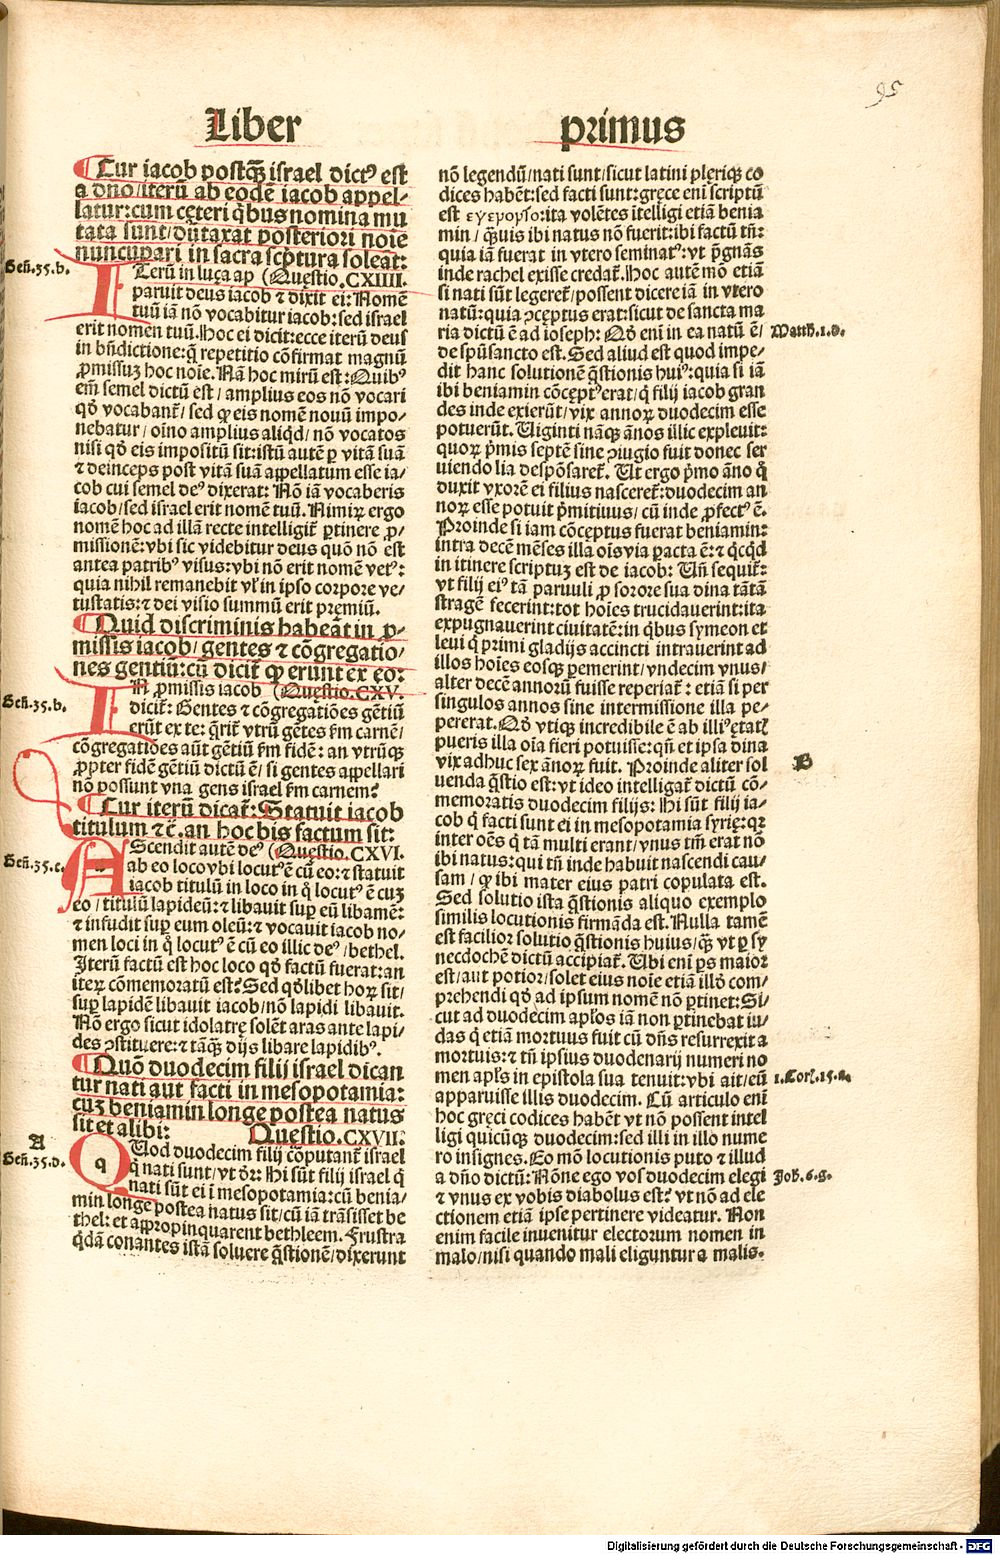 95
Liber primus
¶ Cur iacob postꝙ̃ israel dictꝰ est
a dño/iterū ab eodē iacob appel-
latur: cum cęteri q̃bus nomina mu
tata sunt/dūtaxat posteriori noīe
nuncupari in sacra scp̄tura soleāt:
Geñ.35.b.
ITerū in luça ap (Quęstio.CXIIII.
paruit deus iacob ⁊ dixit ei: Nomē
tuū iā nō vocabitur iacob: sed israel
erit nomen tuū. Hoc ei dicit: ecce iterū deus
in bñdictione: q̃ repetitio cōfirmat magnū
ꝓmissuꝫ hoc noīe. Nā hoc mirū est: Quibꝰ
em̄ semel dictū est/ amplius eos nō vocari
qđ vocabanť/ sed ꝙ eis nomē nouū impo-
nebatur/ oīno amplius aliq̇d/ nō vocatos
nisi qđ eis impositū sit: istū autē ꝑ vitā suā
⁊ deinceps post vitā suā appellatum esse ia-
cob cui semel deꝰ dixerat: Nō iā vocaberis
iacob/ sed israel erit nomē tuū. Nimiꝝ ergo
nomē hoc ad illā recte intelligiť ꝑtinere ꝓ-
missionē: vbi sic videbitur deus quō nō est
antea patribꝰ visus: vbi nō erit nomē vetꝰ:
quia nihil remanebit vľ in ipso corpore ve-
tustatis: ⁊ dei visio summū erit premiū.
¶ Quid discriminis habeāt in ꝓ-
missis iacob/ gentes ⁊ cōgregatio/
nes gentiū: cū diciť ꝙ erunt ex eo:
Geñ.35.b.
IN ꝓmissis iacob (Quęstio.CXV.
diciť: Gentes ⁊ cōgregatiōes gētiū
erūt ex te: q̃riť vtrū gētes ẜm carnē/
cōgregatiōes aūt gētiū ẜm fidē: an vtrūqꝫ
ꝓpter fidē gētiū dictū ē/ si gentes appellari
nō possunt vna gens israel ẜm carnem?
¶ Cur iterū dicať: Statuit iacob
titulum ⁊c̄. an hoc bis factum sit:
Geñ.35.c.
AScendit autē deꝰ (Quęstio.CXVI.
ab eo loco vbi locutꝰ ē cū eo: ⁊ statuit
iacob titulū in loco in q̇ locutꝰ ē cuꝫ
eo/ titulū lapideū: ⁊ libauit suꝑ eū libamē:
⁊ infudit suꝑ eum oleū: ⁊ vocauit iacob no-
men loci in q̇ locutꝰ ē cū eo illic deꝰ/bethel.
Iterū factū est hoc loco qđ factū fuerat: an
iteꝝ cōmemoratū est? Sed qđlibet hoꝝ sit/
suꝑ lapidē libauit iacob/nō lapidi libauit.
Nō ergo sicut idolatrę solēt aras ante lapi/
des ꝯstituere: ⁊ tāꝙ̃ dijs libare lapidibꝰ.
¶ Quō duodecim filij israel dican
tur nati aut facti in mesopotamia:
cuꝫ beniamin longe postea natus
sit et alibi: Questio.CXVII.
A
Geñ.35.d.
q
QUod duodecim filij cōputanť israel
q̇ nati sunt/ vt dr̄: Hi sūt filij israel q̇
nati sūt ei ī mesopotamia: cū benia/
min longe postea natus sit/ cū iā trāsisset be
thel: et appropinquarent bethleem. Frustra
q̇dā conantes istā soluere q̃stionē/ dixerunt
nō legendū/ nati sunt/ sicut latini plęriqꝫ co
dices habēt: sed facti sunt: gręce enī scriptū
est εγεροργο: ita volētes ītelligi etiā benia
min/ ꝙ̃uis ibi natus nō fuerit: ibi factū tn̄:
quia iā fuerat in vtero seminatꝰ: vt p̄gnās
inde rachel exisse credať. Hoc autē mō etiā
si nati sūt legereť/ possent dicere iā in vtero
natū: quia ꝯceptus erat: sicut de sancta ma
ria dictū ē ad ioseph: Qđ enī in ea natū ē/ Matth.1.d.
de spūsancto est. Sed aliud est quod impe/
dit hanc solutionē q̃stionis huiꝰ: quia si iā
ibi beniamin cōcęptꝰ erat/ q̇ filij iacob gran
des inde exierūt/ vix annoꝝ duodecim esse
potuerūt. Uiginti nāqꝫ ānos illic expleuit:
quoꝝ p̄mis septē sine ꝯiugio fuit donec ser
uiendo lia despōsareť. Ut ergo p̄mo āno q̇
duxit vxorē ei filius nascereť: duodecim an
noꝝ esse potuit p̄mitiuus/ cū inde ꝓfectꝰ ē.
Proinde si iam cōceptus fuerat beniamin:
intra decē mēses illa oīs via ꝑacta ē: ⁊ q̇cq̇d
in itinere scriptuꝫ est de iacob: Uñ sequiť:
vt filij eiꝰ tā paruuli ꝓ sorore sua dina tātā
stragē fecerint: tot hoīes trucidauerint: ita
expugnauerint ciuitatē: in q̃bus symeon et
leui q̇ primi gladijs accincti intrauerint ad
illos hoīes eosqꝫ ꝑemerint/ vndecim vnus/
alter decē annorū fuisse reperiať: etiā si per
singulos annos sine intermissione illa pe-
pererat. Qđ vtiqꝫ incredibile ē ab illiꝰ ętatꝭ
pueris illa oīa fieri potuisse: qñ et ipsa dina
vix adhuc sex ānoꝝ fuit. Proinde aliter sol B
uenda q̃stio est: vt ideo intelligať dictū cō-
memoratis duodecim filijs: Hi sūt filij ia-
cob q̇ facti sunt ei in mesopotamia syrię: qꝛ
inter oēs q̇ tā multi erant/ vnus tm̄ erat nō
ibi natus: qui tñ inde habuit nascendi cau-
sam/ ꝙ ibi mater eius patri copulata est.
Sed solutio ista q̃stionis aliquo exemplo
similis locutionis firmāda est. Nulla tamē
est facilior solutio q̃stionis huius/ ꝙ̃ vt ꝑ sy
necdochē dictū accipiať. Ubi enī ps maior
est/ aut potior/ solet eius noīe etiā illđ com/
p̄hendi qđ ad ipsum nomē nō ꝑtinet: Si-
cut ad duodecim apłos iā non ꝑtinebat iu/
das q̇ etiā mortuus fuit cū dñs resurrexit a
mortuis: ⁊ tñ ipsius duodenarij numeri no
men apłs in epistola sua tenuit: vbi ait/ eū 1.Corī.15.a.
apparuisse illis duodecim. Cū articulo enī
hoc gręci codices habēt vt nō possent intel
ligi quicūqꝫ duodecim: sed illi in illo nume
ro insignes. Eo mō locutionis puto ⁊ illud
a dño dictū: Nōne ego vos duodecim elegi Joh.6.g.
⁊ vnus ex vobis diabolus est? vt nō ad ele
ctionem etiā ipse pertinere videatur. Non
enim facile inuenitur electorum nomen in
malo/ nisi quando mali eliguntur a malis.
Digitalisierung gefördert durch die Deutsche Forschungsgemeinschaft - DFG